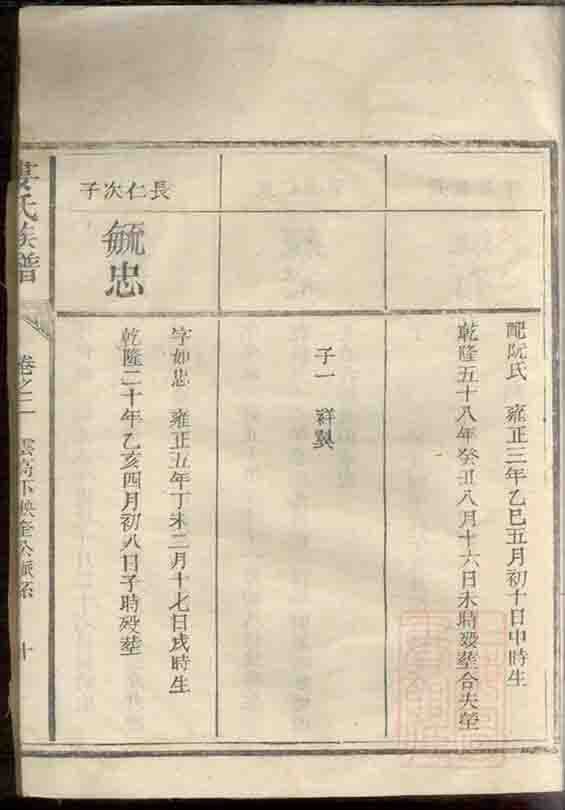 配阮氏 雍正三年乙巳五月初十日申時生
乾隆五十八年癸丑八月十六日未時歿塟合夫塋
子一
長仁次子
毓忠
字如忠 雍正五年丁未二月十七日戌時生
乾隆二十年乙亥四月初八日子時歿塟
氏族譜
卷之二
十